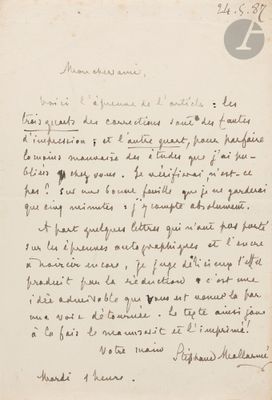 24.5.87
Mon cher ami,
Voici l'épreuve de l'article : les
trois quarts des corrections sont des fautes
d'impression ; et l'autre quart, pour parfaire
la moins mauvaise des études que j'ai pu-
bliées chez vous. Je vérifierai, n'est-ce
pas ? sur une bonne feuille que je ne garderai
que cinq minutes : j'y compte absolument.
A part quelques lettres qui n'ont pas porté
sur les épreuves autographiques et l'encre
à noircir encore, je juge délicieux l'effet
produit par la réduction. c'est une
idée admirable que vous est venue là par
une voie détournée. Le texte ainsi joue
à la fois le manuscrit et l'imprimé !
Votre main
Stéphane Mallarmé
Mardi 1 heure.